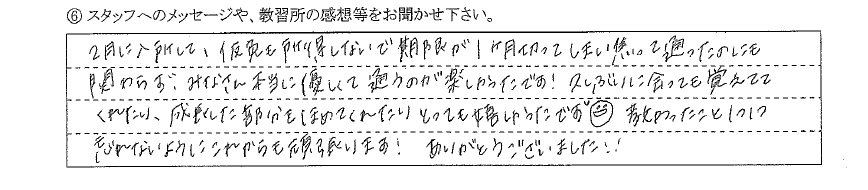 ⑥ スタッフへのメッセージや、教習所の感想等をお聞かせ下さい。
2月に入所して、仮免も所得しないで期限が1ヶ月切ってしまい焦って通ったのにも
関わらず、みなさん本当に優しくて通うのが楽しかったです！久しぶりに会っても覚えてて
くれたり、成長した部分をほめてくれたりとっても嬉しかったです 教わったこと1つ1つ
忘れないようにこれからも頑張ります！ ありがとうございました!!